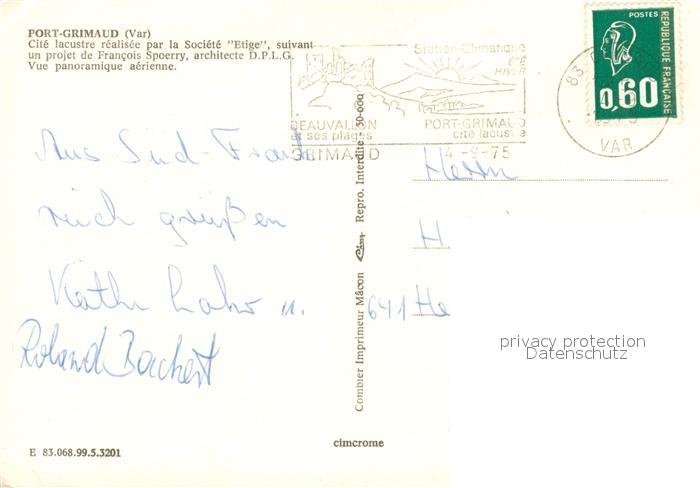 PORT-GRIMAUD (Var)
Cité lacustre réalisée par la Société "Etige", suivant
un projet de François Spoerry, architecte D.P.L.G.
Vue panoramique aérienne.
Station Climatique
ÉTÉ
HIVER
BEAUVALLON
et ses plages
GRIMAUD
PORT-GRIMAUD
cité lacustre
4-9-75
83
VAR
POSTES
REPUBLIQUE FRANÇAISE
0,60
Aus Süd-Frank
reich grüßen
Käthe u.
Roland Bachert
Combier Imprimeur Mâcon Cim Repro. Interdite 50-000
Herrn
H
641 He
privacy protection
Datenschutz
E 83.068.99.5.3201
cimcrome